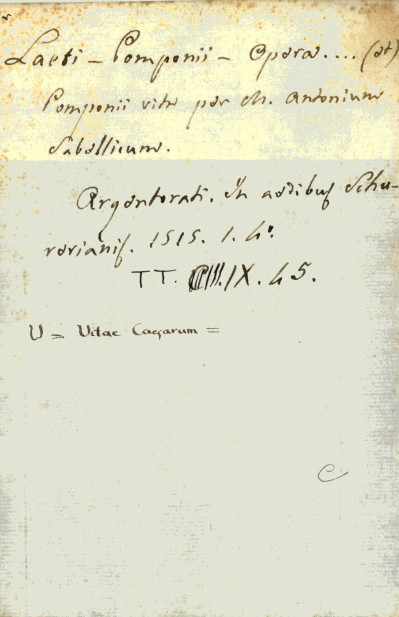 Laeti - Pomponii - Opera.... (et)
Pomponii vita per M. Antonium
Sabellicum.
Argentorati. In aedibus Schu-
rerianis. 1515. 1. 4º.
TT. IX. 45.
V = Vitae Caesarum =